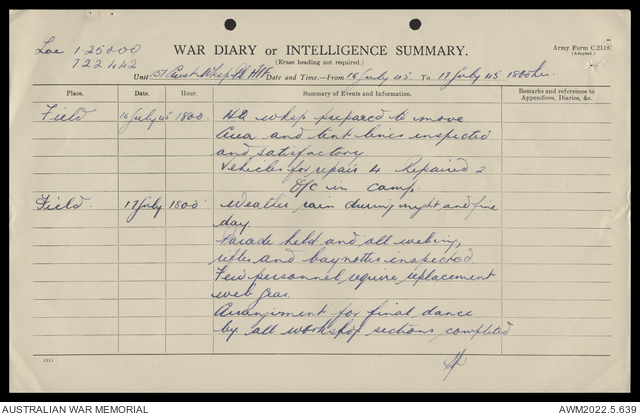 Loc 1·25000
722442
WAR DIARY or INTELLIGENCE SUMMARY.
(Erase heading not required.)
Army Form C.2118
(Adapted.)
Unit 151 Aust Wksp Date and Time.—From 16 July 45 To 17 July 45 1800hrs.
Place. Date. Hour. Summary of Events and Information. Remarks and references to Appendices, Diaries, &c.
Field 16 July 45 1800 HQ wksp prepared to move
Area and tent lines inspected
and satisfactory
Vehicles for repair 4 Repaired 2
O/C in camp.
Field. 17 July 1800 Weather rain during night and fine
day.
Parade held and all webing,
rifles and baynottes inspected
Few personnel require replacement
web gear.
Arrangiment for final dance
by all workshop sections completed
(31)
AUSTRALIAN WAR MEMORIAL
AWM2022.5.639